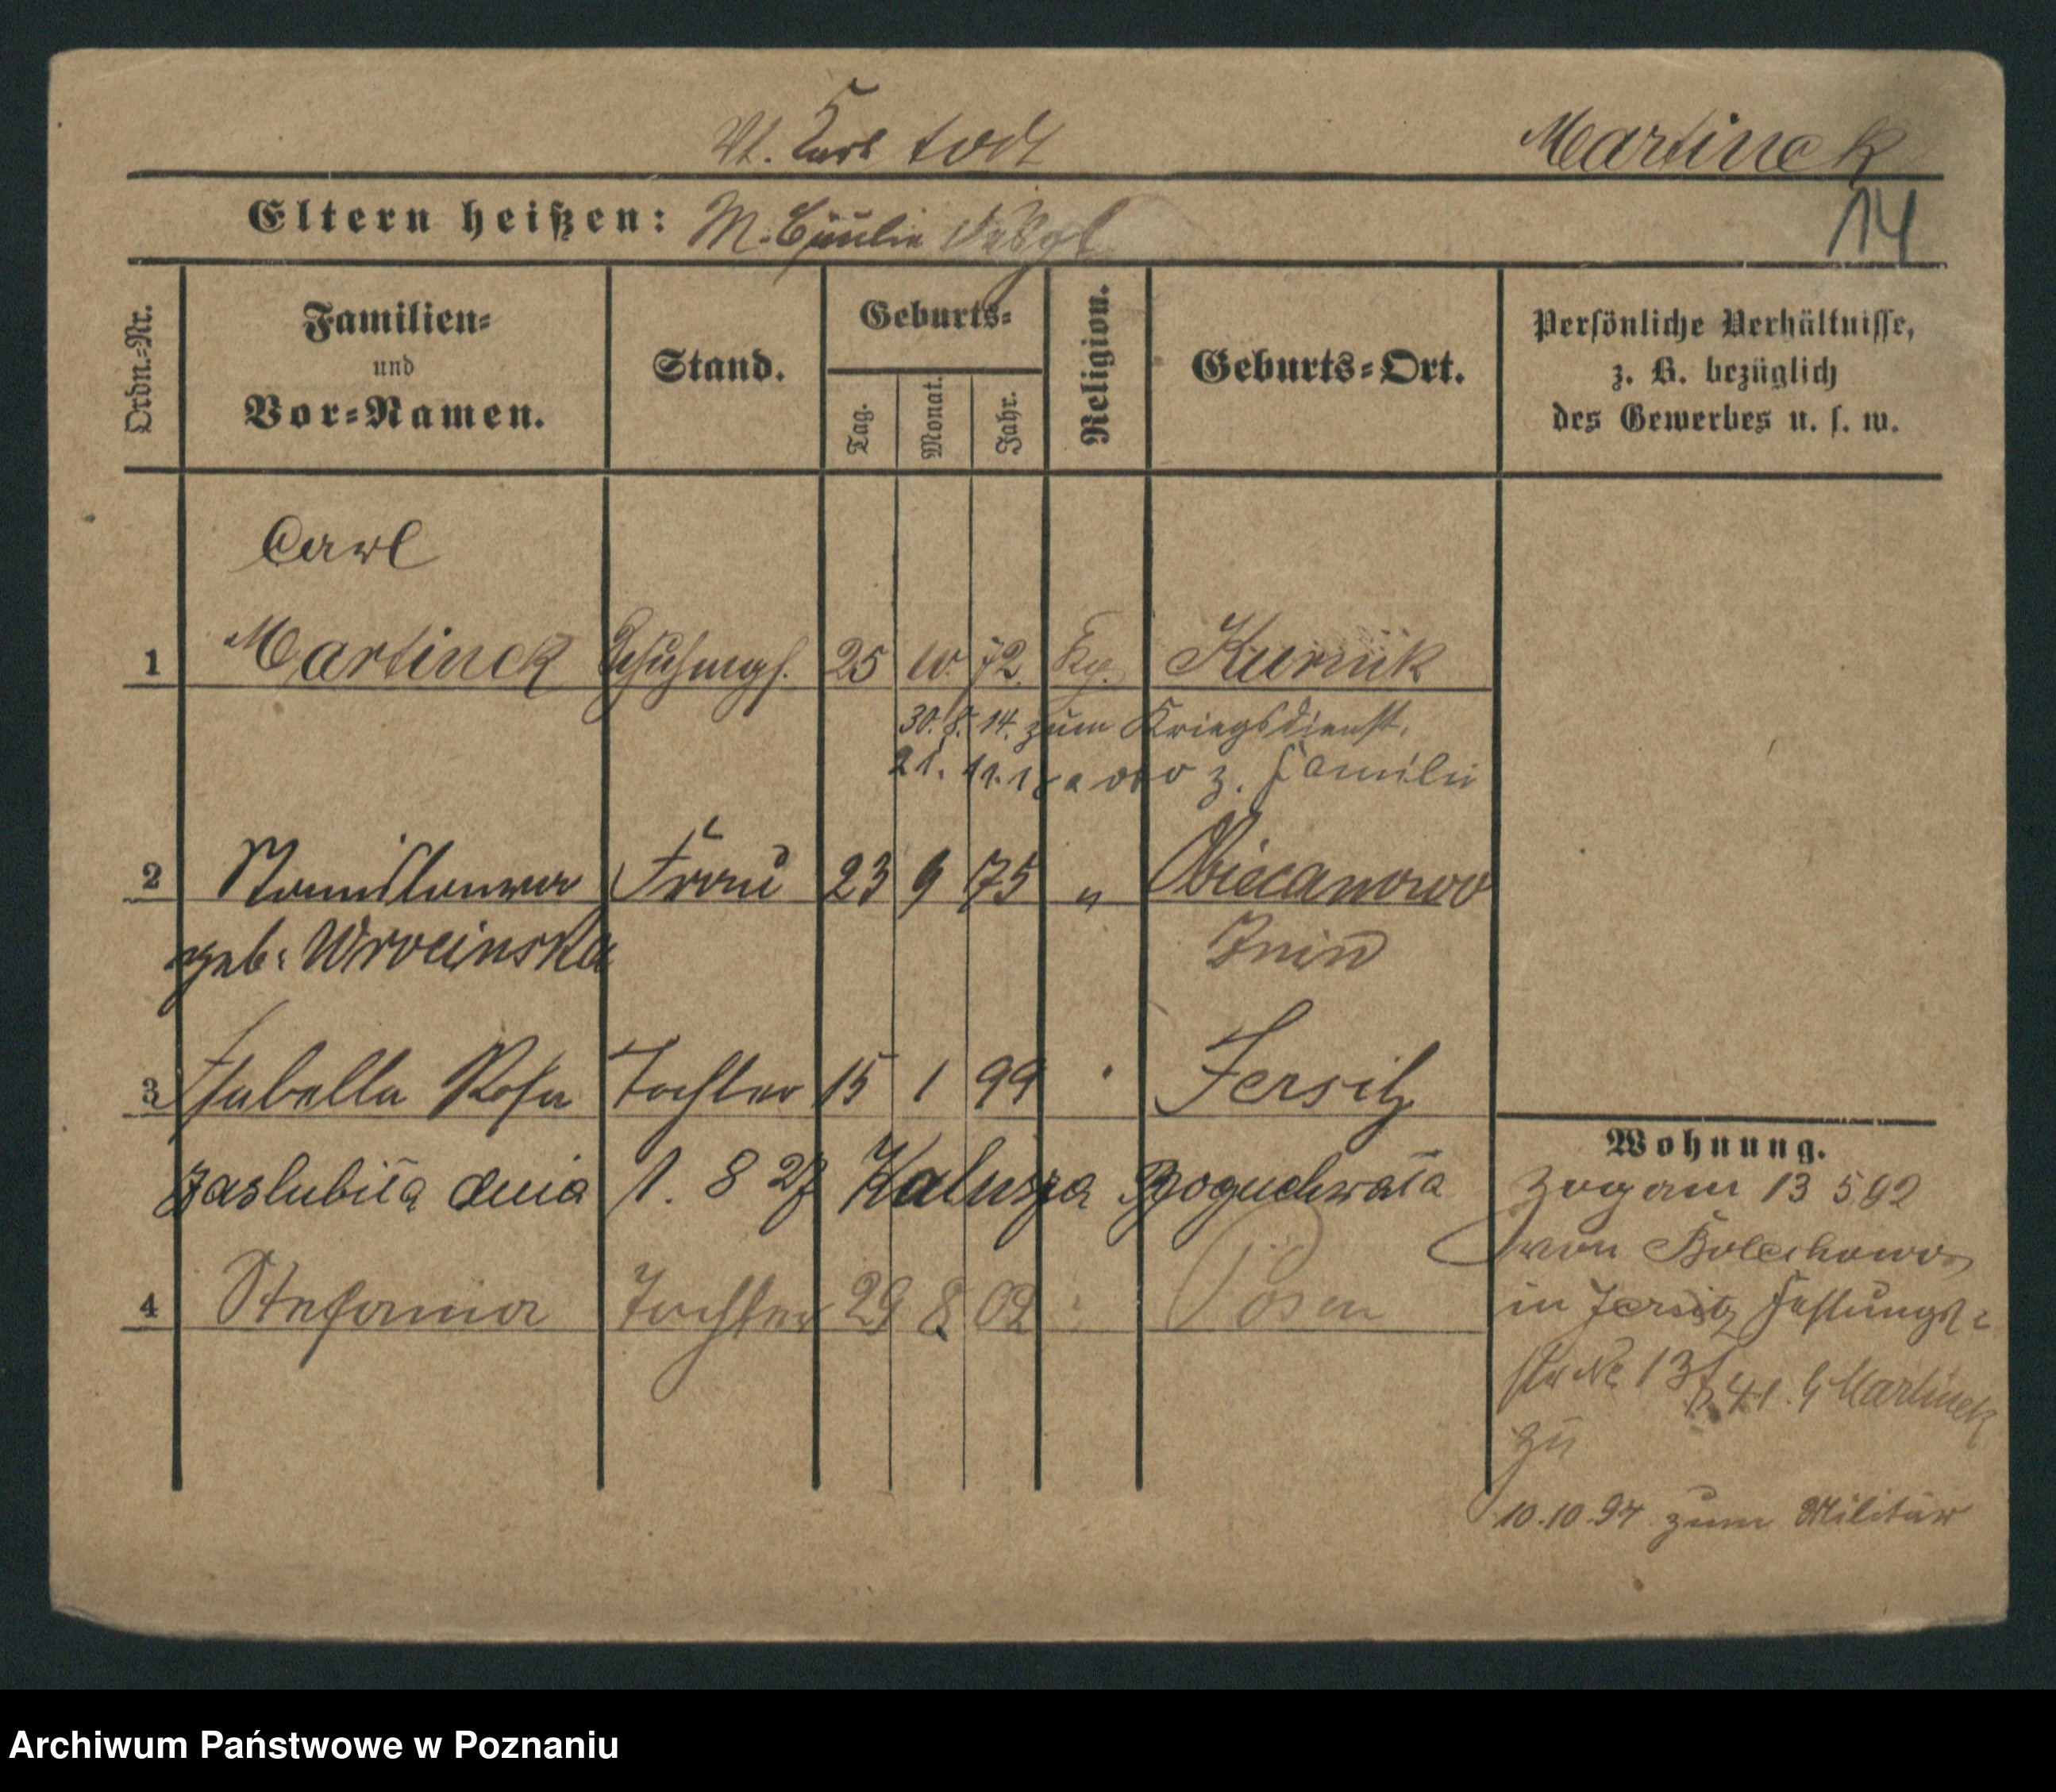 Vt. Karl todt
Martinek
Eltern heißen: M. Cäcilie
14
Ordn.=Nr.
Familien=
und
Vor=Namen.
Stand.
Geburts=
Tag.
Monat.
Jahr.
Religion.
Geburts=Ort.
Persönliche Verhältnisse,
z. B. bezüglich
des Gewerbes u. s. w.
Carl
1 Martinek Schuhmgs. 25 10. 72. Kurnik
30. 8. 14. zum Kriegsdienst.
21. 11. 18 z. Familie
2 Stanislawa Frau 23 9 75 " Obiecanowo
geb: Wrocinska Znin
3 Isabella Rosa Tochter 15 1 99 Jersitz
zaslubiła dnia 1. 8 27 Kalusza Boguchwała
4 Stefania Tochter 29 8 02 Posen
Wohnung.
Zugam 13 5 92
von Bolechowo
in Jersitz Festungs=
str No 13 Martinek
zu
10. 10. 94 zum Militär
Archiwum Państwowe w Poznaniu